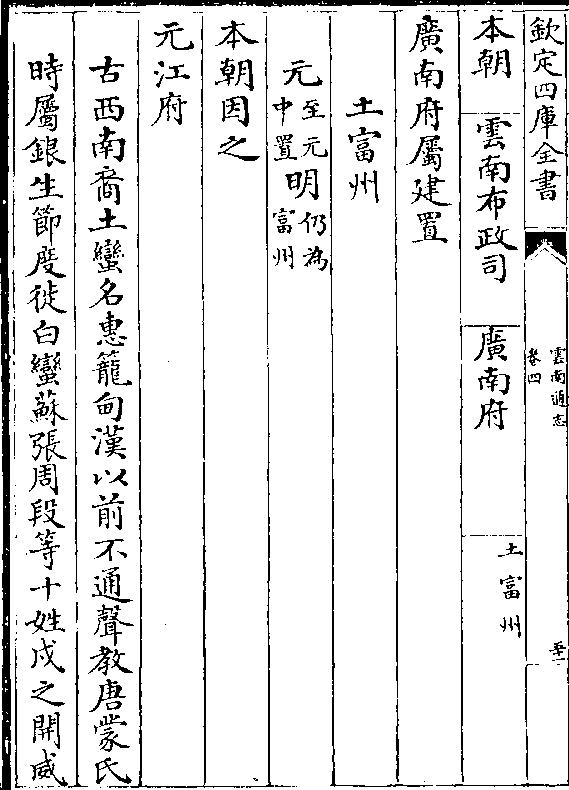 欽定四庫全書
雲南通志
卷四
至一
本朝 雲南布政司 廣南府 土富州
廣南府屬建置
土富州
元至元中置明仍為富州
本朝因之
元江府
古西南裔土蠻名惠籠甸漢以前不通聲教唐蒙氏
時屬銀生節度徙白蠻蘇張周段等十姓戍之開威